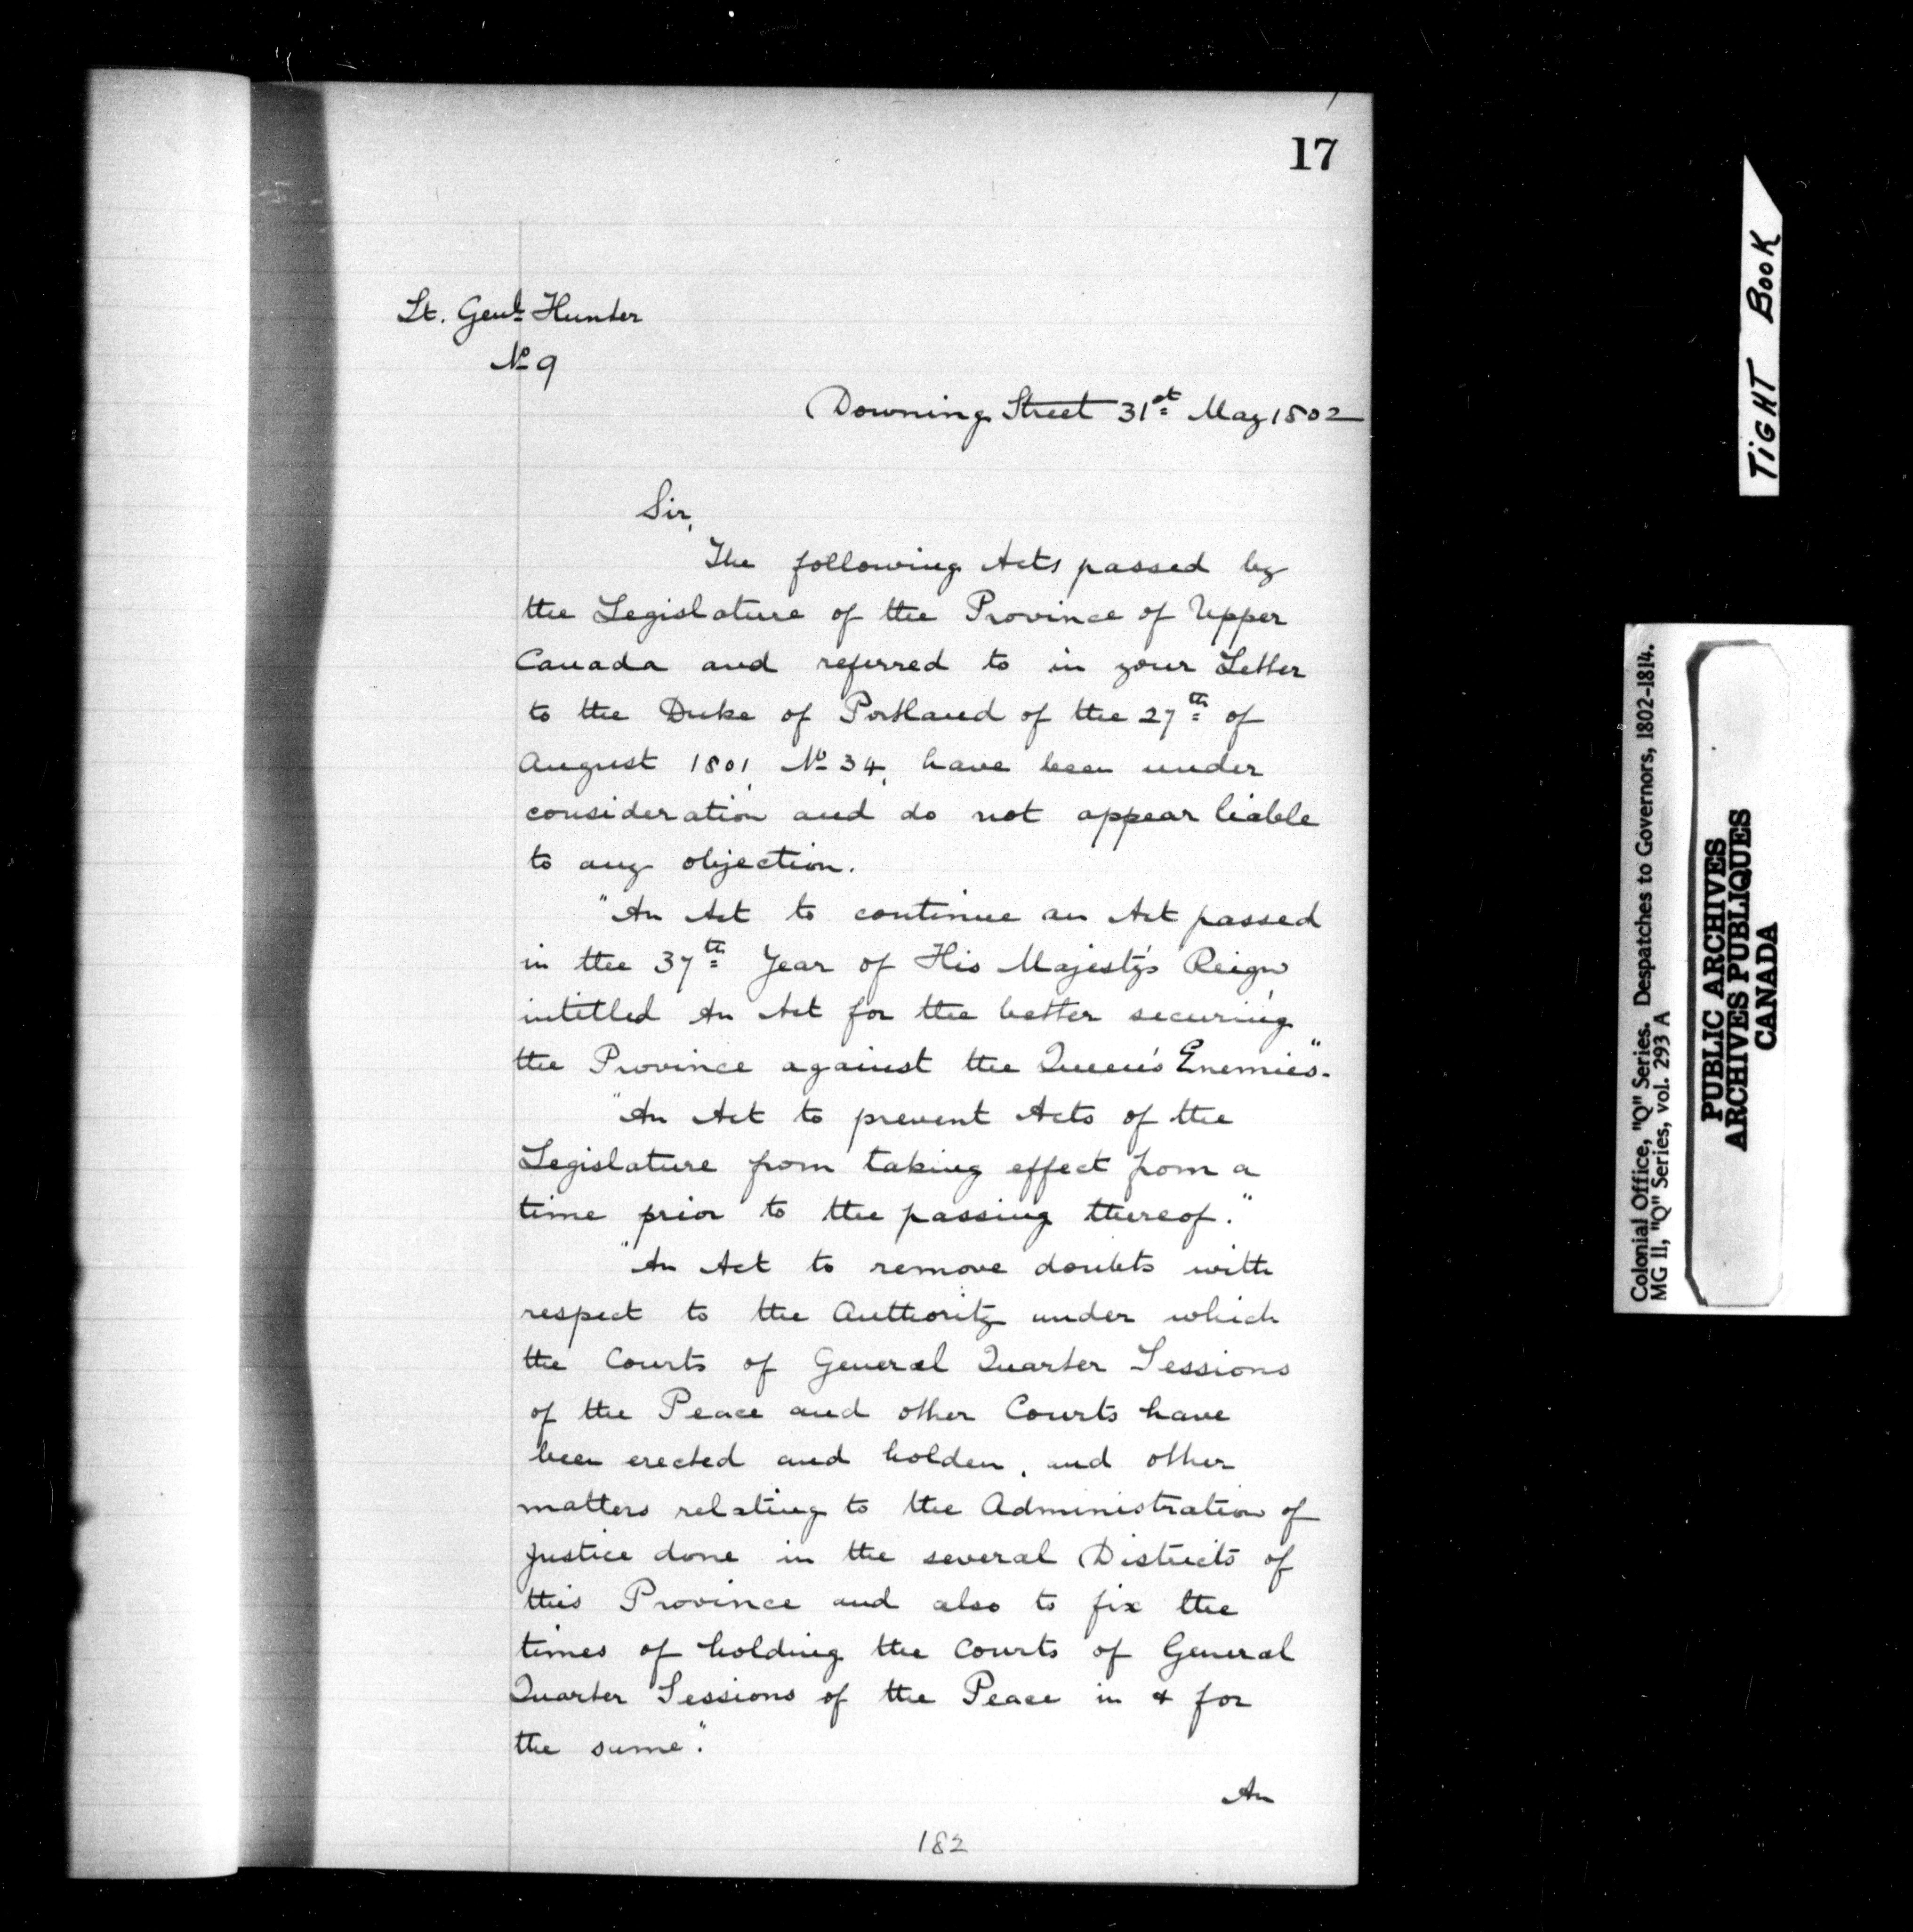 17
Lt. Genl. Hunter
No 9
Downing Street 31st May 1802
Sir,
The following Acts passed by
the Legislature of the Province of Upper
Canada and referred to in your Letter
to the Duke of Portland of the 27th of
August 1801, No 34, have been under
consideration and do not appear liable
to any objection.
"An Act to continue an Act passed
in the 37th Year of His Majesty's Reign,
intitled An Act for the better securing
the Province against the Queen's Enemies".
"An Act to prevent Acts of the
Legislature from taking effect from a
time prior to the passing thereof."
"An Act to remove doubts with
respect to the Authority under which
the Courts of General Quarter Sessions
of the Peace and other Courts have
been erected and holden, and other
matters relating to the Administration of
Justice done in the several Districts of
this Province and also to fix the
times of holding the Courts of General
Quarter Sessions of the Peace in & for
the same".
An
182
TIGHT BOOK
Colonial Office, "Q" Series. Despatches to Governors, 1802-1814.
MG 11, "Q" Series, vol. 293 A
PUBLIC ARCHIVES
ARCHIVES PUBLIQUES
CANADA